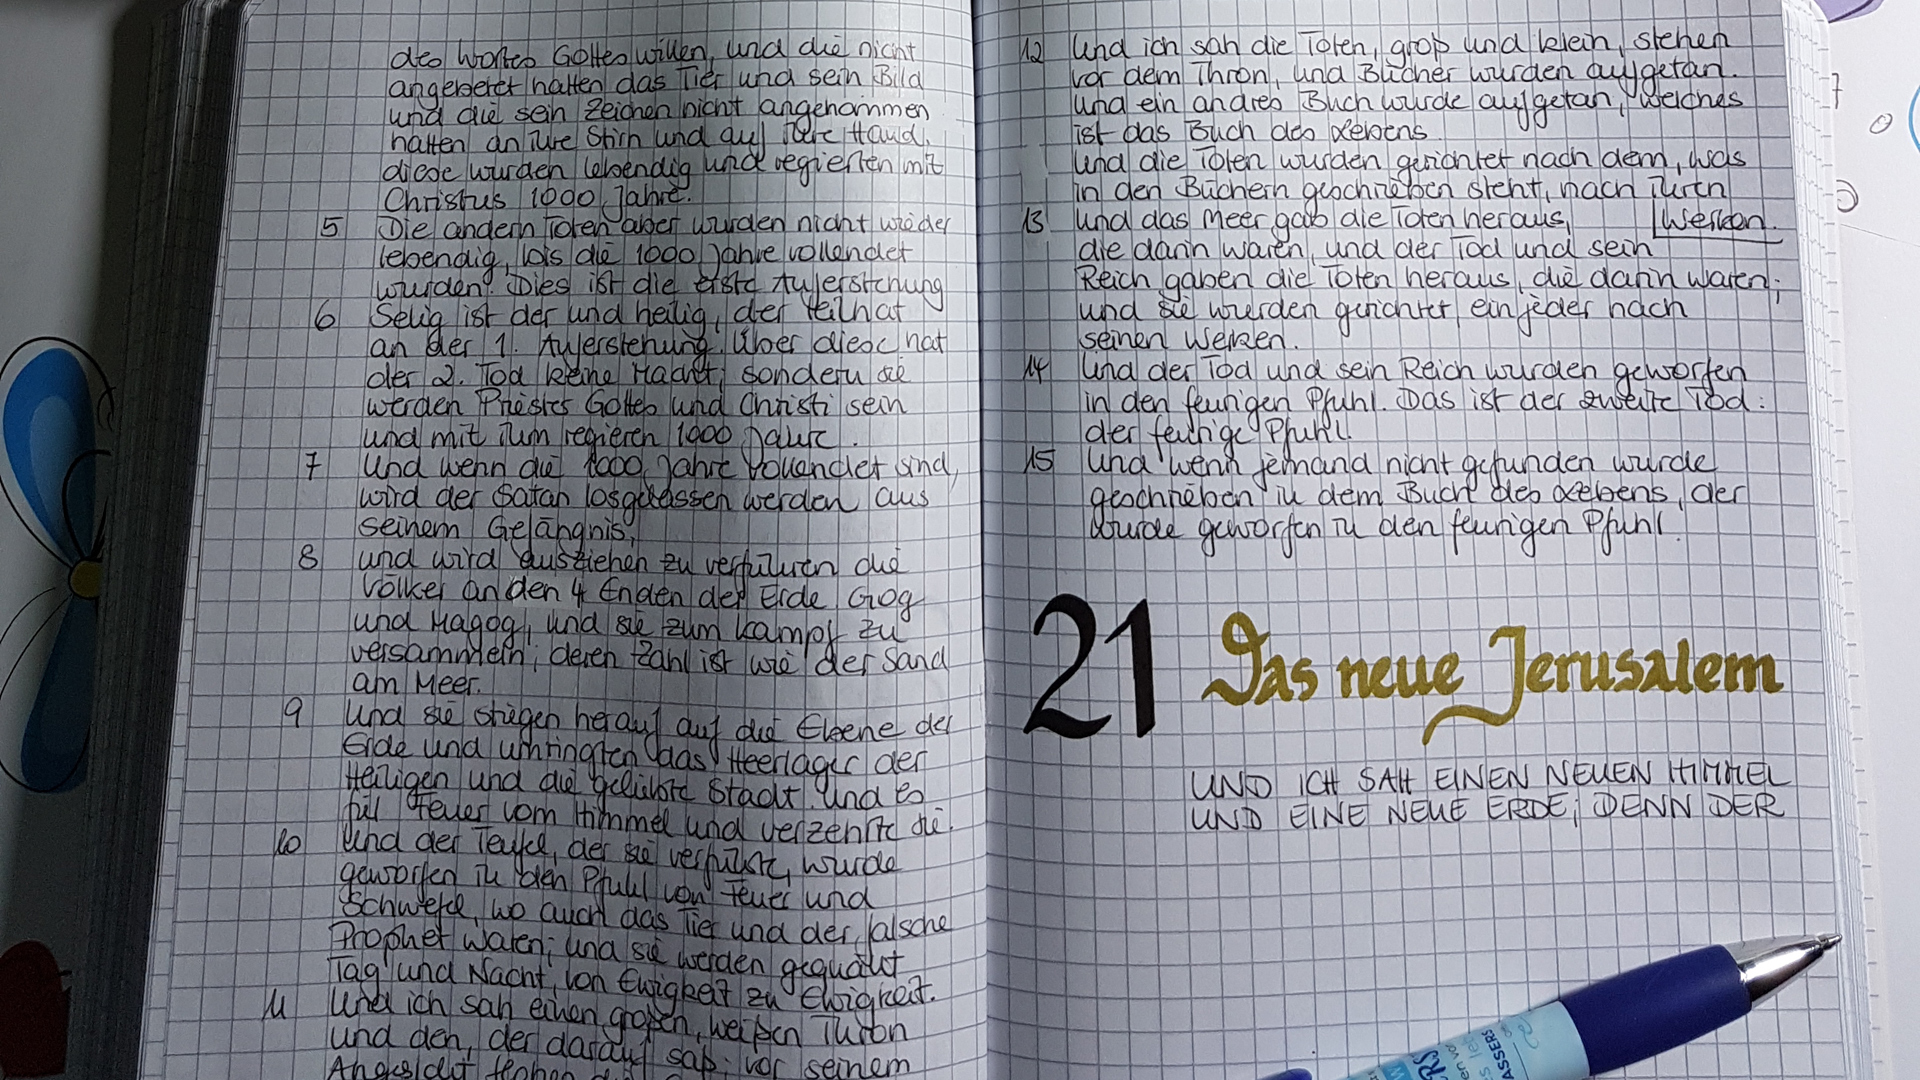 des Wortes Gottes willen, und die nicht
angebetet hatten das Tier und sein Bild
und die sein Zeichen nicht angenommen
hatten an ihre Stirn und auf ihre Hand,
diese wurden lebendig und regierten mit
Christus 1000 Jahre.
5 Die andern Toten aber wurden nicht wieder
lebendig, bis die 1000 Jahre vollendet
wurden. Dies ist die erste Auferstehung
6 Selig ist der und heilig, der teilhat
an der 1. Auferstehung. Über diese hat
der 2. Tod keine Macht; sondern sie
werden Priester Gottes und Christi sein
und mit ihm regieren 1000 Jahre.
7 Und wenn die 1000 Jahre vollendet sind,
wird der Satan losgelassen werden aus
seinem Gefängnis,
8 und wird ausziehen zu verführen die
Völker an den 4 Enden der Erde, Gog
und Magog, und sie zum Kampf zu
versammeln; deren Zahl ist wie der Sand
am Meer.
9 Und sie stiegen herauf auf die Ebene der
Erde und umringten das Heerlager der
Heiligen und die geliebte Stadt. Und es
fiel Feuer vom Himmel und verzehrte sie.
10 Und der Teufel, der sie verführte, wurde
geworfen in den Pfuhl von Feuer und
Schwefel, wo auch das Tier und der falsche
Prophet waren; und sie werden gequält
Tag und Nacht, von Ewigkeit zu Ewigkeit.
11 Und ich sah einen großen, weißen Thron
und den, der darauf saß; vor seinem
Angesicht flohen die
12 Und ich sah die Toten, groß und klein, stehen
vor dem Thron, und Bücher wurden aufgetan.
Und ein andres Buch wurde aufgetan, welches
ist das Buch des Lebens.
Und die Toten wurden gerichtet nach dem, was
in den Büchern geschrieben steht, nach ihren
Werken.
13 Und das Meer gab die Toten heraus,
die darin waren, und der Tod und sein
Reich gaben die Toten heraus, die darin waren;
und sie wurden gerichtet, ein jeder nach
seinen Werken.
14 Und der Tod und sein Reich wurden geworfen
in den feurigen Pfuhl. Das ist der zweite Tod:
der feurige Pfuhl.
15 Und wenn jemand nicht gefunden wurde
geschrieben in dem Buch des Lebens, der
wurde geworfen in den feurigen Pfuhl.
21 Das neue Jerusalem
UND ICH SAH EINEN NEUEN HIMMEL
UND EINE NEUE ERDE; DENN DER